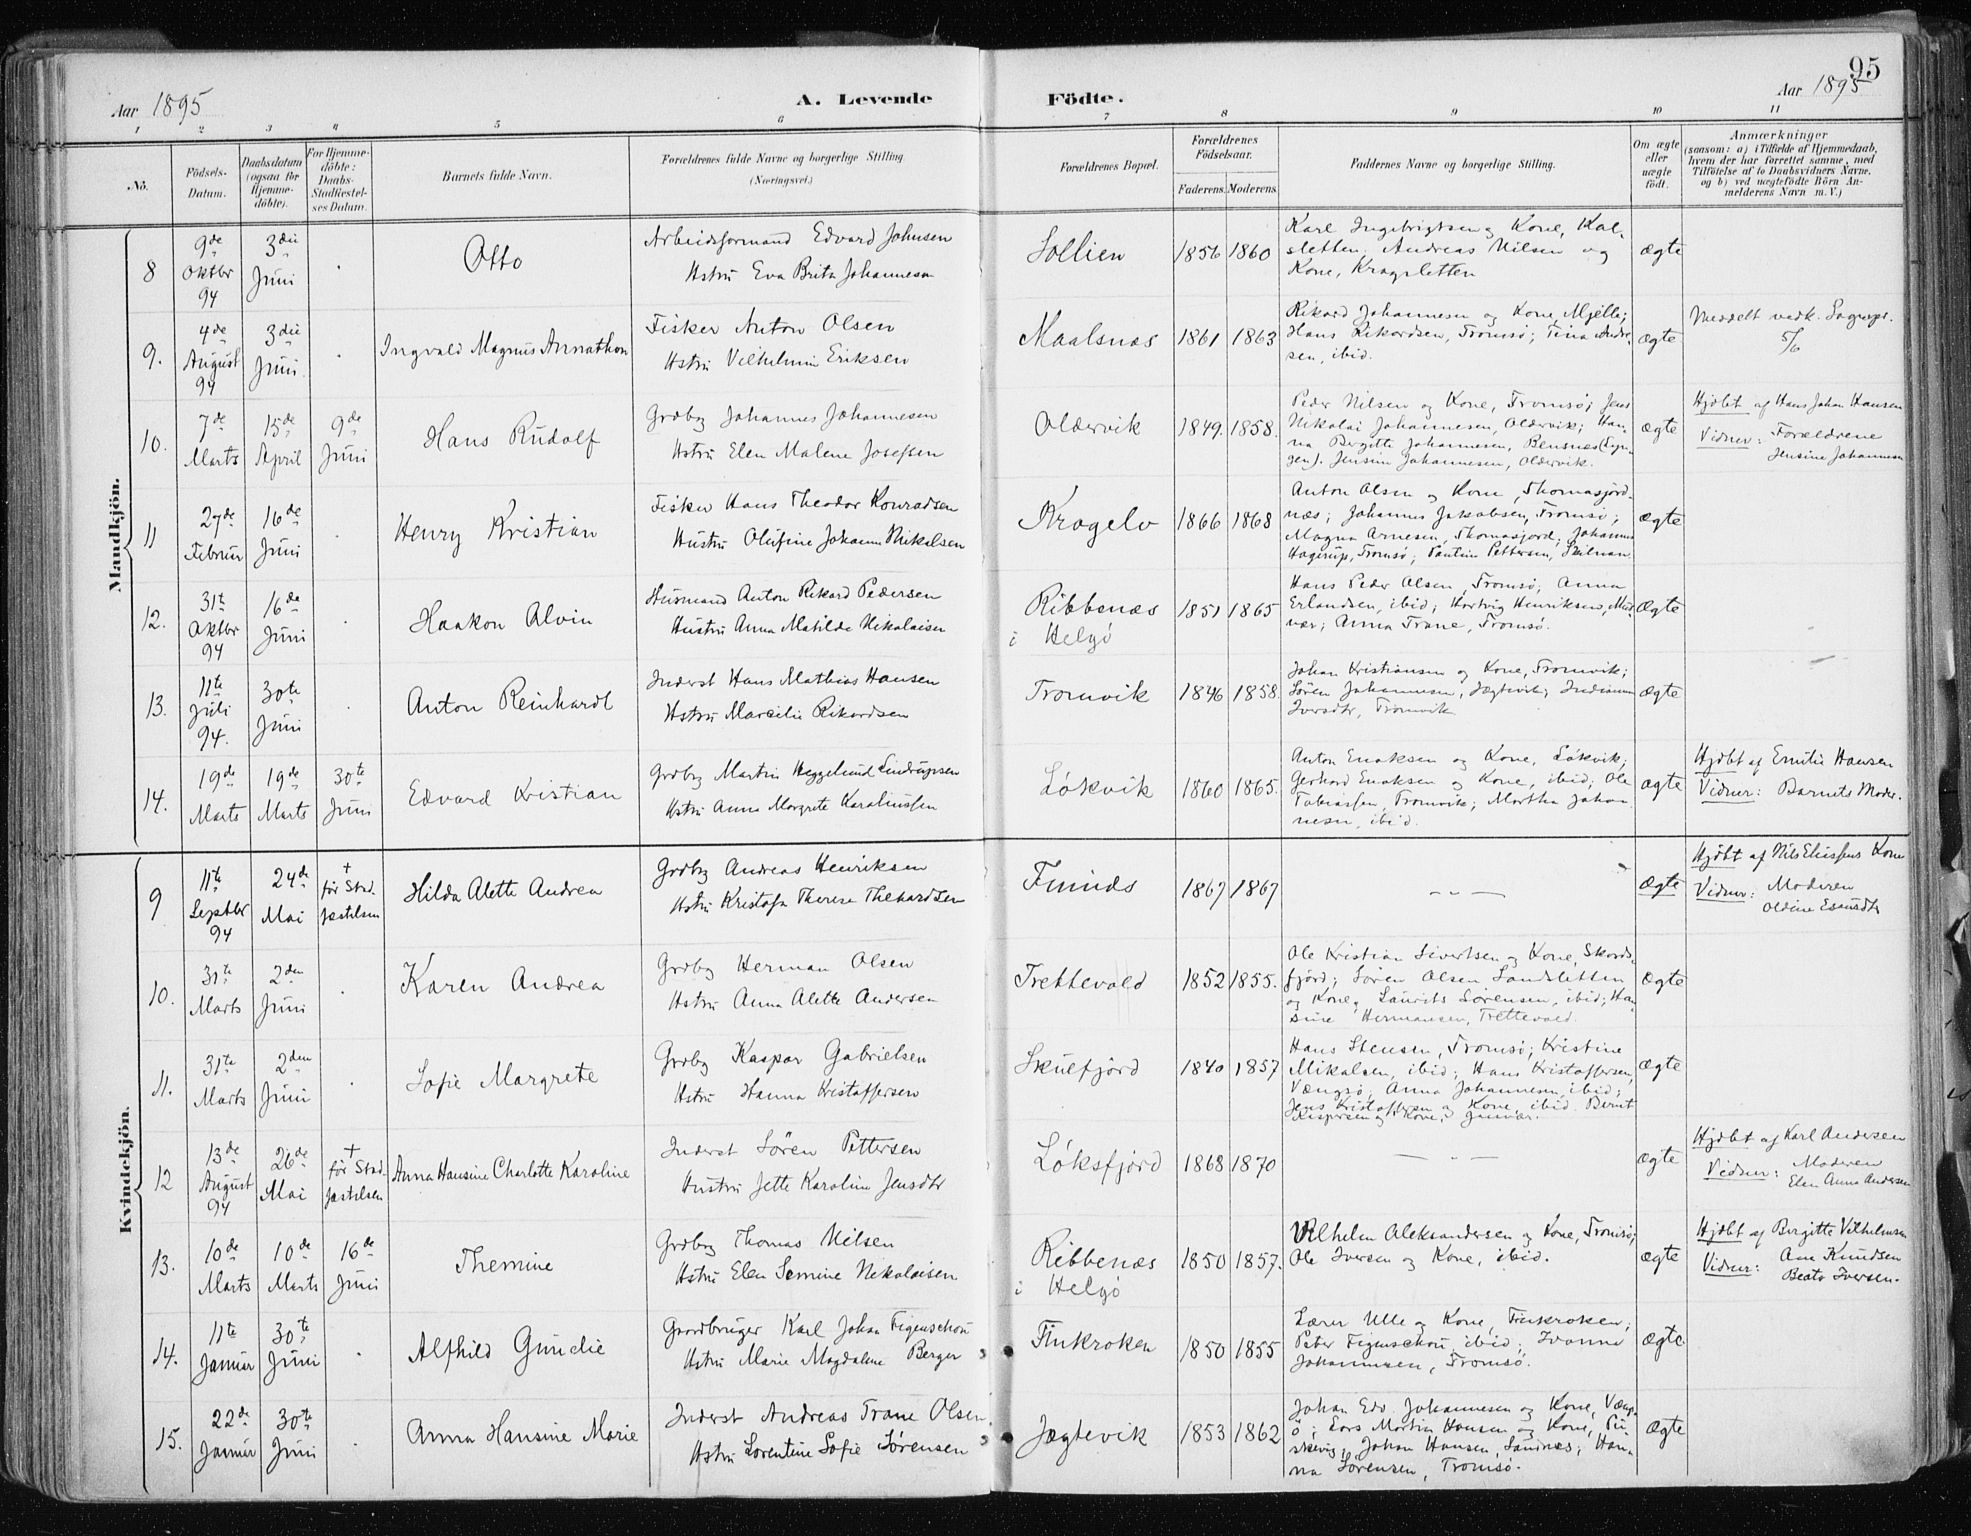 95
Aar 1895
A. Levende
Födte.
Aar 1895
1 2 3 4 5 6 7 8 9 10 11
No.
Födsels-
Datum.
Daabsdatum
(ogsaa for
Hjemme-
döbte).
For Hjemme-
döbte:
Daabs-
Stadfæstel-
ses Datum.
Barnets fulde Navn.
Forældrenes fulde Navne og borgerlige Stilling.
(Næringsvei.)
Forældrenes Bopæl.
Forældrenes
Födselsaar.
Faderens. Moderens.
Faddernes Navne og borgerlige Stilling.
Om ægte
eller
uægte
födt.
Anmærkninger
(saasom: a) i Tilfælde af Hjemmedaab,
hvem der har forrettet samme, med
Tilföielse af to Daabsvidners Navne,
og b) ved uægtefödte Börn An-
melderens Navn m. V.)
Mandkjön.
8
9de
Oktbr
94
3die
Juni
Otto
Arbeidsformand Edvard Johnsen
Hstru Eva Brita Johannesen
Sollien
1856 1860
Karl Ingebrigtsen og Kone, Kal-
sletten, Andreas Nilsen og
Kone, Kragsletten
ægte
9.
4de
August
94
3die
Juni
Ingvald Magnus Annathon
Fisker Anton Olsen
Hstru Vilhelmine Eriksen
Maalsnæs
1861 1863
Rikard Johannesen og Kone, Mjelle;
Hans Rikardsen, Tromsö; Tina Andre-
sen, ibid.
ægte
Meddelt vedk. Sogнepr.
5/6
10.
7de
Marts
15de
April
9de
Juni
Hans Rudolf
Grdbg Johannes Johannesen
Hstru Elen Malene Josefsen
Oldervik
1849. 1858.
Peder Nilsen og Kone, Tromsö; Jens
Nikolai Johannesen, Oldervik; Han-
na Bergitte Johannesen, Bensnæs (Lyn-
gen). Jensine Johannesen, Oldervik.
ægte
Hjdbt af Hans Johan Hansen
Vidner: Forældrene
Jensine Johannesen
11
27de
Februar
16de
Juni
Henry Kristian
Fisker Hans Theodor Konradsen
Hustru Olufine Johanna Nikolsen
Kragelv
1866 1868
Anton Olsen og Kone, Thomasjord-
næs; Johannes Jakobsen, Tromsö;
Magna Arnesen, Thomasjord; Johannes
Hagerup, Tromsö; Pettersen,
ægte
12.
31te
Oktbr
94
16de
Juni
Haakon Alvin
Husmand Anton Rikard Pedersen
Hustru Anna Matilde Nikolaisen
Ribbenæs
i Helgö
1851 1865
Hans Peder Olsen, Tromsö; Anna
Erlandsen, ibid; Hartvig Henriksen, Mus-
vær; Anna Trane, Tromsö.
ægte
13.
11te
Juli
94.
30te
Juni
Anton Reinhardt
Inderst Hans Mathias Hansen
Hstru Marcelie Rikardsen
Tromvik
1846 1858.
Johan Kristiansen og Kone, Tromvik;
Sören Johannesen, Jægtevik;
Iversdtr, Tromvik
ægte
14.
19de
Marts
19de
Marts
30te
Juni
Edvard Kristian
Grdbg Martin Heggelund Lindrupsen
Hstru Anna Margrete Karoliussen
Lökvik
1860 1865.
Anton Enoksen og Kone, Lökvik;
Gerhard Enoksen og Kone, ibid; Ole
Tobiassen, Tromvik; Martha Johan-
nesen, ibid.
ægte
Hjdbt af Emilie Hansen
Vidner: Barnets Moder.
Kvindekjön.
9
11te
Septbr
94
24de
Mai
†
för Stad-
fæstelsen
Hilda Alette Andrea
Grdbg Andreas Henriksen
Hstru Kristofa Therese Thehardsen
Finnds
1867 1867
— " —
ægte
Hjdbt af Nils Eliassens Kone
Vidner: Moderen
Oldine Esausdtr
10.
31te
Marts
2den
Juni
Karen Andrea
Grdbg Herman Olsen
Hstru Anna Alette Andersen
Trettevold
1852 1855.
Ole Kristian Sivertsen og Kone, Skords-
fjord; Sören Olsen Sandsletten
og Kone, Laurits Sörensen, ibid; Han-
sine Hermansen, Trettevold.
ægte
11.
31te
Marts
2den
Juni
Sofie Margrete
Grdbg Kaspar Gabrielsen
Hstru Hanna Kristoffersen
Skulfjord
1840 1857
Hans Stensen, Tromsö; Kristine
Mikalsen, ibid; Hans Kristoffersen,
Vængsö; Anna Johannesen, ibid;
Jens Kristoffersen og Kone, ibid. Bernt
Kaspersen og Kone,
ægte
12
13de
August
94
26de
Mai
†
för Stad-
fæstelsen
Anna Hansine Charlotte Karoline
Inderst Sören Pettersen
Hustru Jette Karoline Jensdtr
Löksfjord
1868 1870
— " —
ægte
Hjdbt af Karl Andersen
Vidner: Moderen
Elen Anna Andersen
13.
10de
Marts
10de
Marts
16de
Juni
Themine
Grdbg Thomas Nilsen
Hstru Elen Semine Nikolaisen
Ribbenæs
i Helgö
1850 1857.
Vilhelm Aleksandersen og Kone, Tromsö;
Ole Iversen og Kone, ibid.
ægte
Hjdbt af Birgitte Vilhelmsen
Vidner: Ane Knudsen
Beate Iversen.
14.
11te
Januar
30te
Juni
Alfhild Gundie
Gaardbruger Karl Johan Figenschou
Hstru Marie Magdalene Berger
Finkroken
1850 1855
Lærer Ulle og Kone, Finkroken;
Peter Figenschou, ibid; Ivanna
Johannesen, Tromsö.
ægte
15.
22de
Januar
30te
Juni
Anna Hansine Marie
Inderst Andreas Trane Olsen
Hstru Lorentine Sofie Sörensen
Jægtevik
1853 1862
Johan Edv. Johannesen og Kone, Vængs-
ö; Lars Martin Hansen og Kone,
Johan Hansen, Sandnæs; Han-
na Sörensen, Tromsö.
ægte